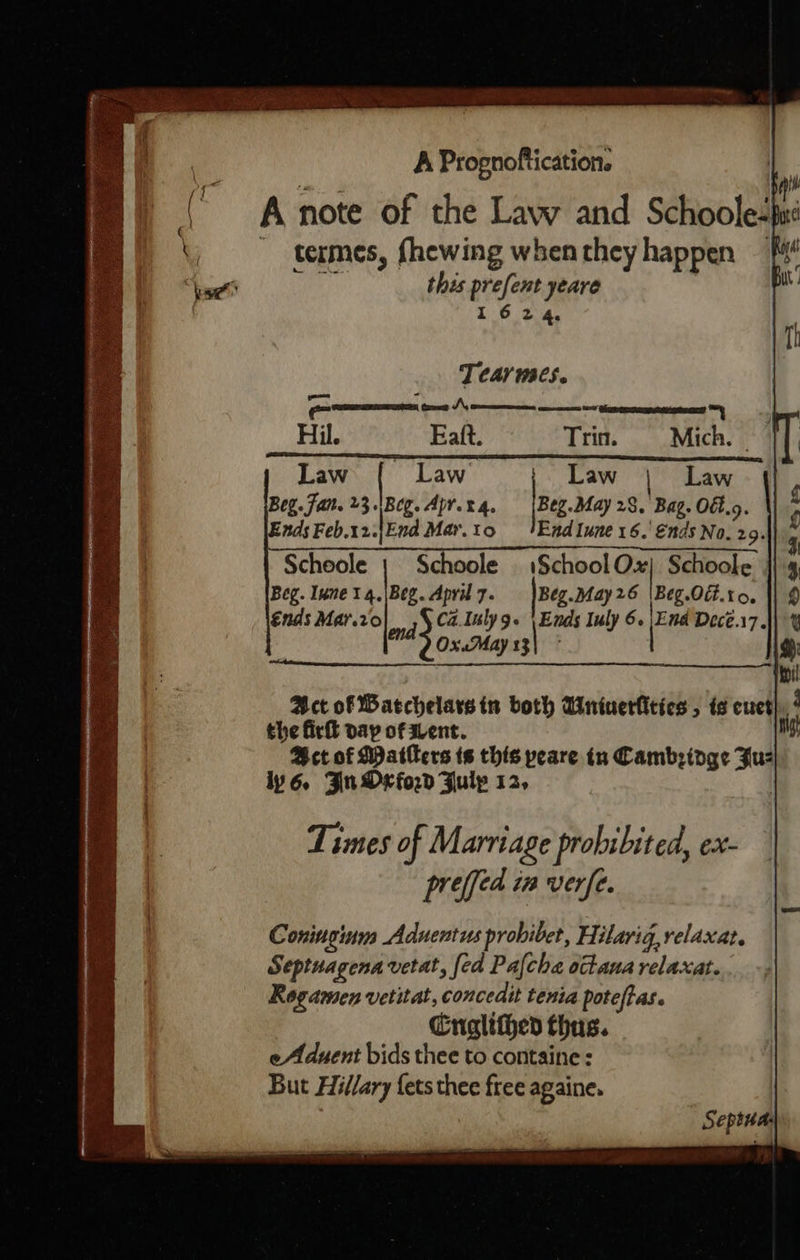 A Prognoſtication.
A note of the Law and Schoole-
termes, ſhewing when they happen
this preſent yeare
1624.
Tearmes.
Hil. Eaſt. Trin. Mich.
Law Law Law Law
Beg. Jan. 23. Beg. Apr. 14. Beg. May 28. Bag. Oct. 9.
Ends Feb. 12. End Mar. 10 End Iune 16. Ends No. 29.
Schoole Schoole School Ox Schoole
Beg. Iune 14. Beg. April 7. Beg. May 26 Beg. Oct. 10.
Ends Mar. 20 end Ca. Iuly 9. Ends Iuly 6. End Dece. 17.
Ox. May 13
Act of Batchelars in both Vniuerſities, is euer
the firſt day of Lent.
Act of Maiſters is this yeare in Cambridge Iu-
ly 6. In Oxford July 12.
Times of Marriage prohibited, ex-
preſſed in verſe.
Coniugium Aduentus prohibet, Hilariq, relaxat.
Septuagena vetat, ſed Paſcha octana relaxat.
Rogamen vetitat, concedit tenia poteſtas.
Engliſhed thus.
Aduent bids thee to containe:
But Hillary ſets thee free againe.
Septua-